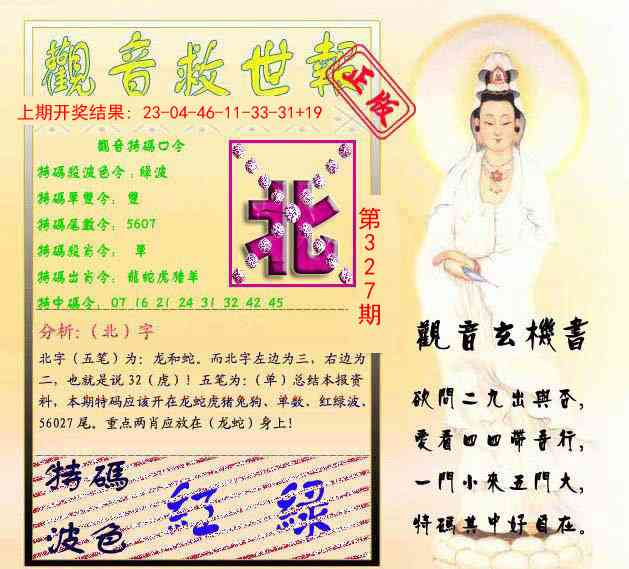 觀音救世報
正版
上期开奖结果：23-04-46-11-33-31+19
觀音特碼口令
特碼段波色令：綠波
特碼單雙令： 雙
特碼尾數令： 5607
特碼段肖令： 單
特碼出肖令： 龍蛇虎猪羊
特中碼令： 07 16 21 24 31 32 42 45
北
第327期
分析：（北）字
北字（五笔）为：龙和蛇。而北字左边为三，右边为
二，也就是说 32（虎）！五笔为：（单）总结本报资
料，本期特码应该开在龙蛇虎猪兔狗、单数、红绿波、
56027 尾。重点两肖应放在（龙蛇）身上！
特碼
波色
紅 綠
觀音玄機書
欲問二九出與否，
愛看四四帶吾行，
一門小來五門大，
特碼其中好自在。